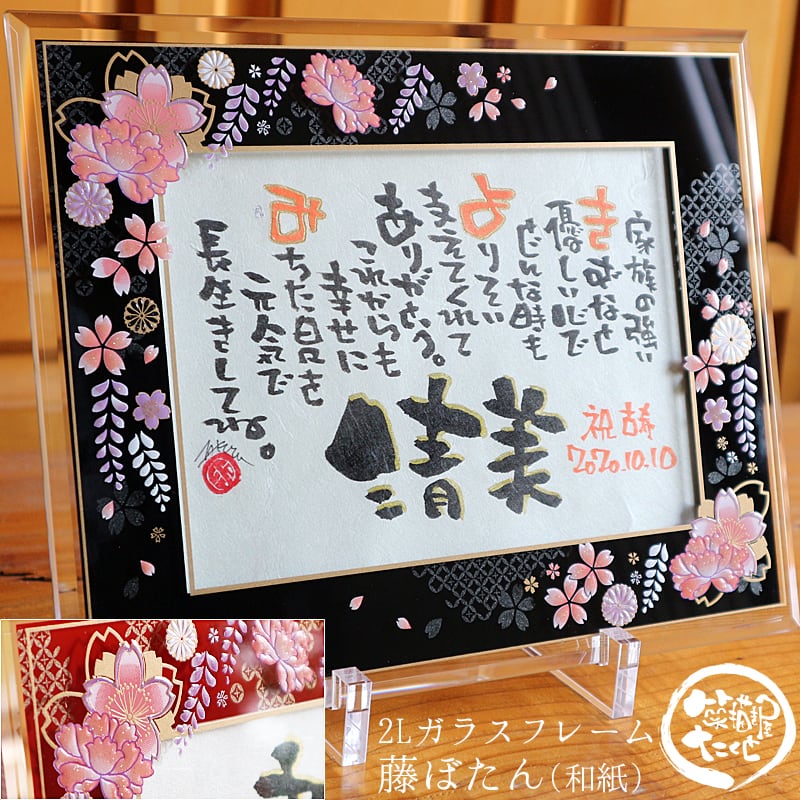 家族の強い
きずなと
優しい心で
どんな時も
よりそい
支えてくれて
ありがとう。
これからも
幸せに
みちた日々を
元気で
長生きしてね。
清美
祝 古希
2020.10.10
2Lガラスフレーム
藤ぼたん（和紙）